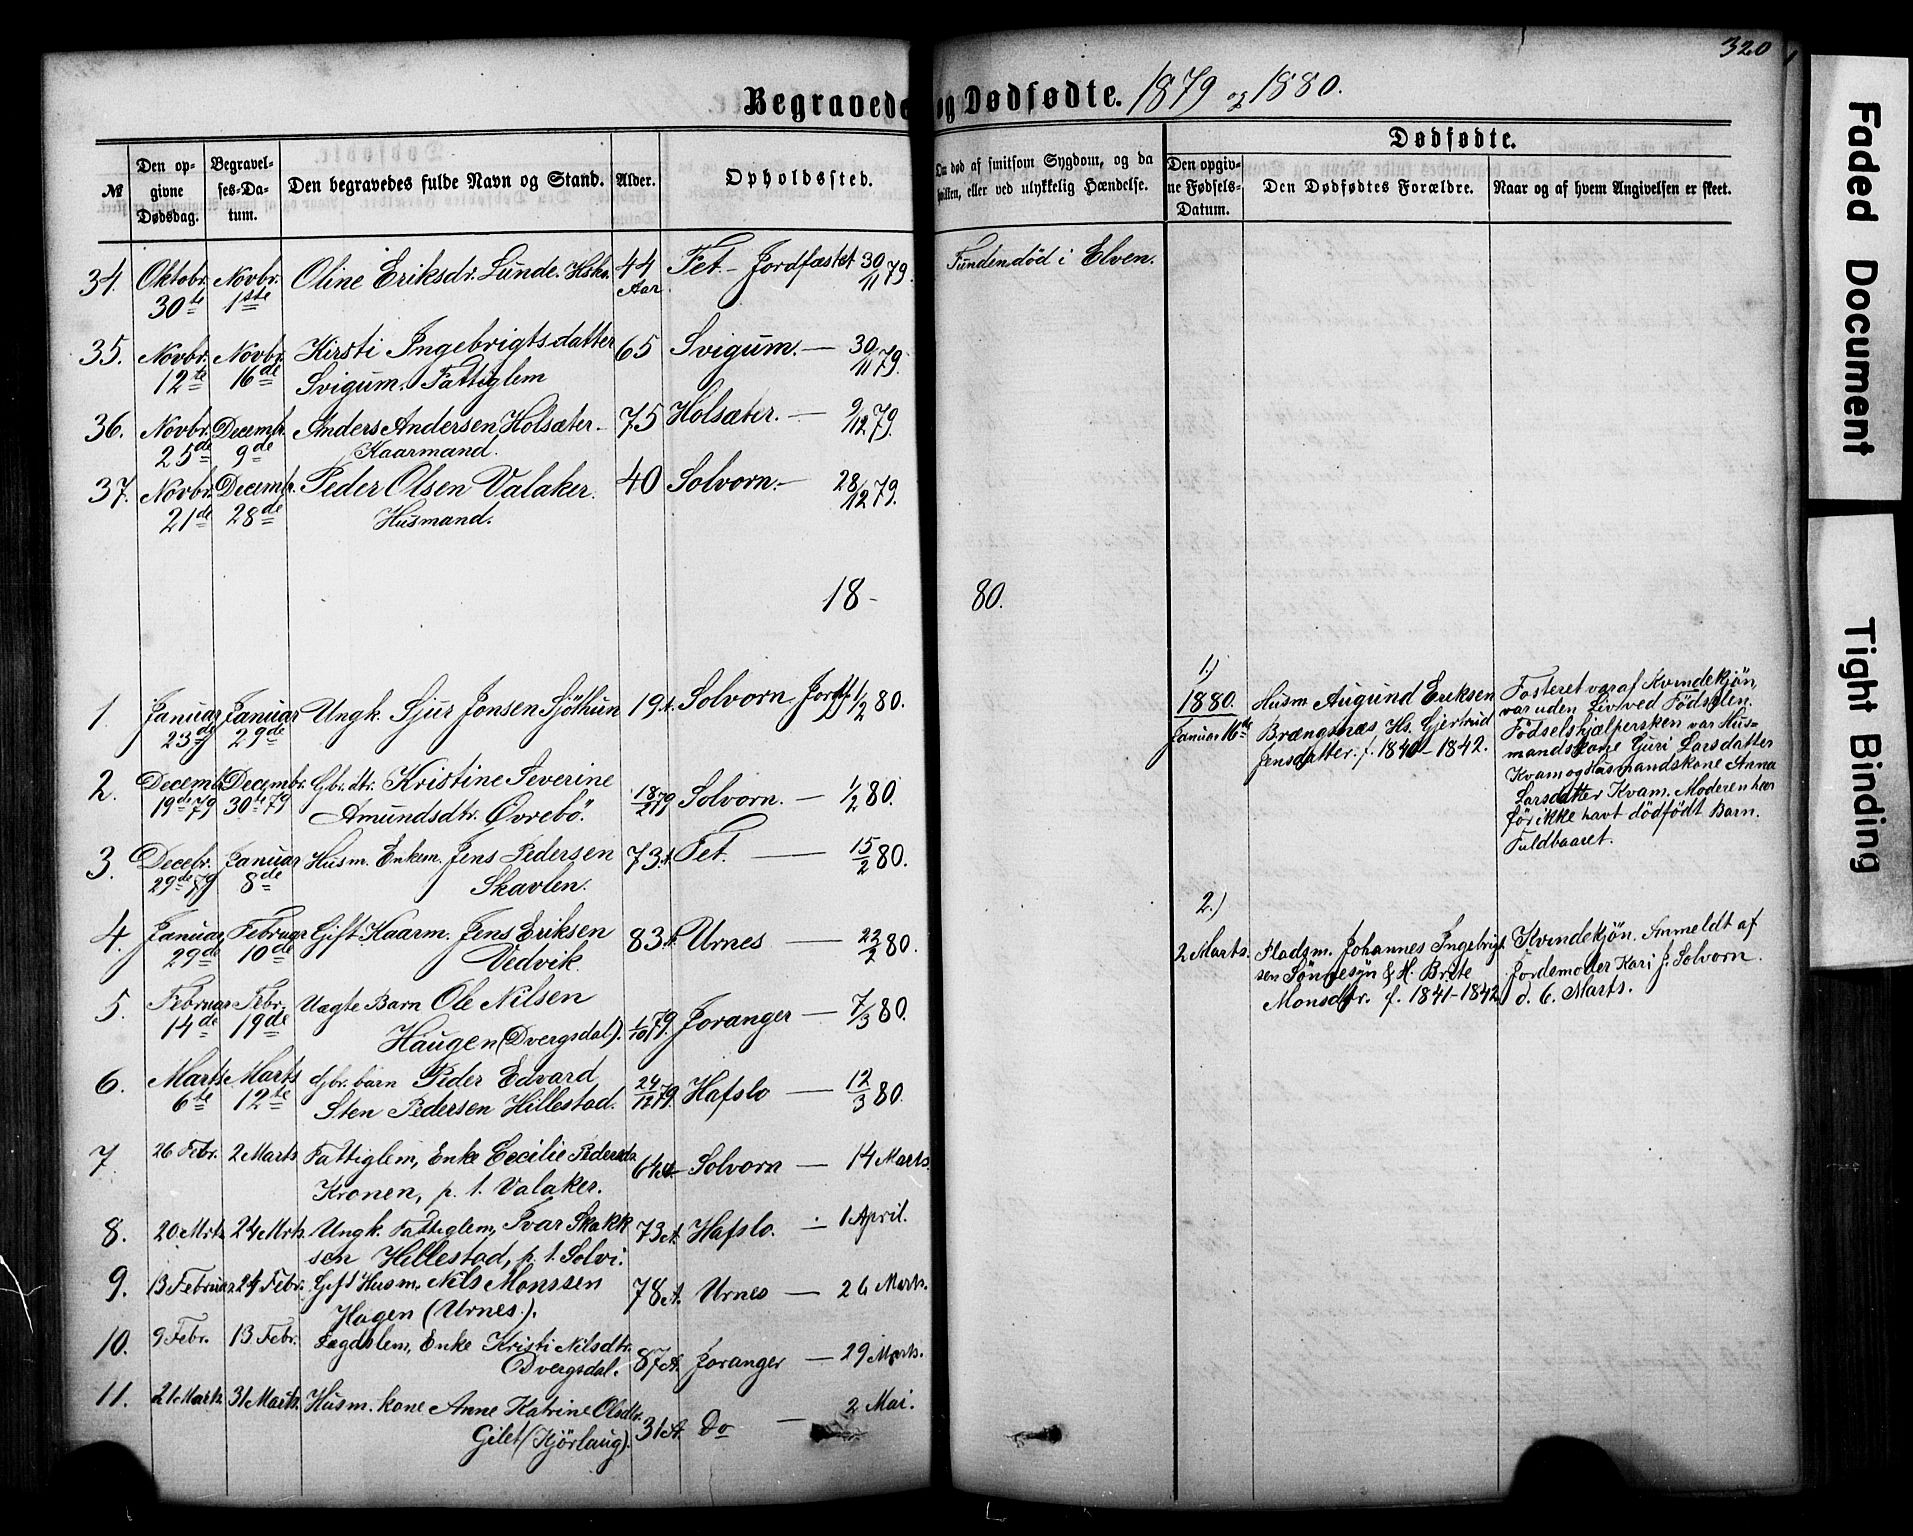 320
Begravede og Dødfødte. 1879 og 1880.
№
Den opgivne Dødsdag.
Begravelses-Datum.
Den begravedes fulde Navn og Stand.
Alder.
Opholdssted.
Om død af smitsom Sygdom, og da hvilken, eller ved ulykkelig Hændelse.
Dødfødte.
Den opgivne Fødsels-Datum.
Den Dødfødtes Forældre.
Naar og af hvem Angivelsen er skeet.
34. Oktobr. 30te Novbr. 1ste Oline Eriksdr. Lunde. Hsk. 44 Aar. Fet. – Jordfæstet 30/11 79. Funden død i Elven.
35. Novbr. 12te Novbr. 16de Kirsti Ingebrigtsdatter 65 Svigum. — 30/11 79.
Svigum. Fattiglem
36. Novbr. 25de Decembr. 9de Anders Andersen Holsæter. 75 Holsæter. — 9/12 79.
Kaarmand.
37. Novbr. 21de Decembr. 28de Peder Olsen Valaker. 40 Solvorn. – 28/12 79.
Husmand.
18- 80.
1. Januar 23de Januar 29de Ungk. Sjur Jonsen Sjöthun 19 A. Solvorn Jordf. 1/2 80.
2. Decembr. 19de 79 Decembr. 30te 79 Gbr. dtr. Kristine Severine 18/2 79 Solvorn. — 1/2 80.
Amundsdtr. Øvrebö.
3. Decebr. 29de 79 Januar 8de Husm. Enkem. Jens Pedersen 73 A. Fet. — 15/2 80.
Skavlen.
4. Januar 29de Februar 10de Gift Kaarm. Jens Eriksen 83 A. Urnes — 22/2 80.
Vedvik.
5. Februar 14de Febr. 19de Uægte Barn Ole Nilsen 1/10 79. Joranger — 7/3 80.
Haugen (Dvergsdal.).
6. Marts 6te Marts 12te Gbr. barn Peder Edvard 24/12 79. Hafslo — 12/3 80.
Sten Pedersen Hillestad.
7. 26 Febr. 2 Marts Fattiglem, Enke Cecilie Pedersdr. 64 A. Solvorn — 14 Marts.
Kronen, p. t. Valaker.
8. 20 Mrts. 24 Mrts. Ungk. Fattiglem, Ivar Skakk 73 A. Hafslo. – 1 April.
sen Hillestad, p. t. Solvi.
9. 13 Februar 24 Febr. Gift Husm. Nils Monssen 78 A. Urnes — 26 Marts.
Hagen (Urnes.).
10. 9 Febr. 13 Febr. Lægdslem, Enke Kristi Nilsdtr. 87 A. Joranger — 29 Marts.
Dvergsdal.
11. 21 Marts. 31 Marts. Husm. kone Anne Katrine Olsdtr. 31 A. Do — 2 Mai.
Gilet (Kjörlaug).
1.)
1880.
Januar 16de
Husm. Augund Eriksen
Brængsnæs, Hs. Gjertrud
Jensdatter. f. 1840 – 1842.
Fosteret var af Kvindekjön,
var uden Liv ved Födselen.
Födselshjælpersken var Hus-
mandskone Guri Larsdatter
Kvam og Husmandskone Anna
Larsdatter Kvam. Moderen har
för ikke havt dödfödt Barn.
Fuldbaaret.
2.)
2 Marts.
Pladsm. Johannes Ingebrigt
sen Sönnesyn & H. Brite
Monsdtr. f. 1841-1842
Kvindekjön. Anmeldt af
Jordemoder Kari J. Solvorn.
d. 6. Marts.
Faded Document
Tight Binding